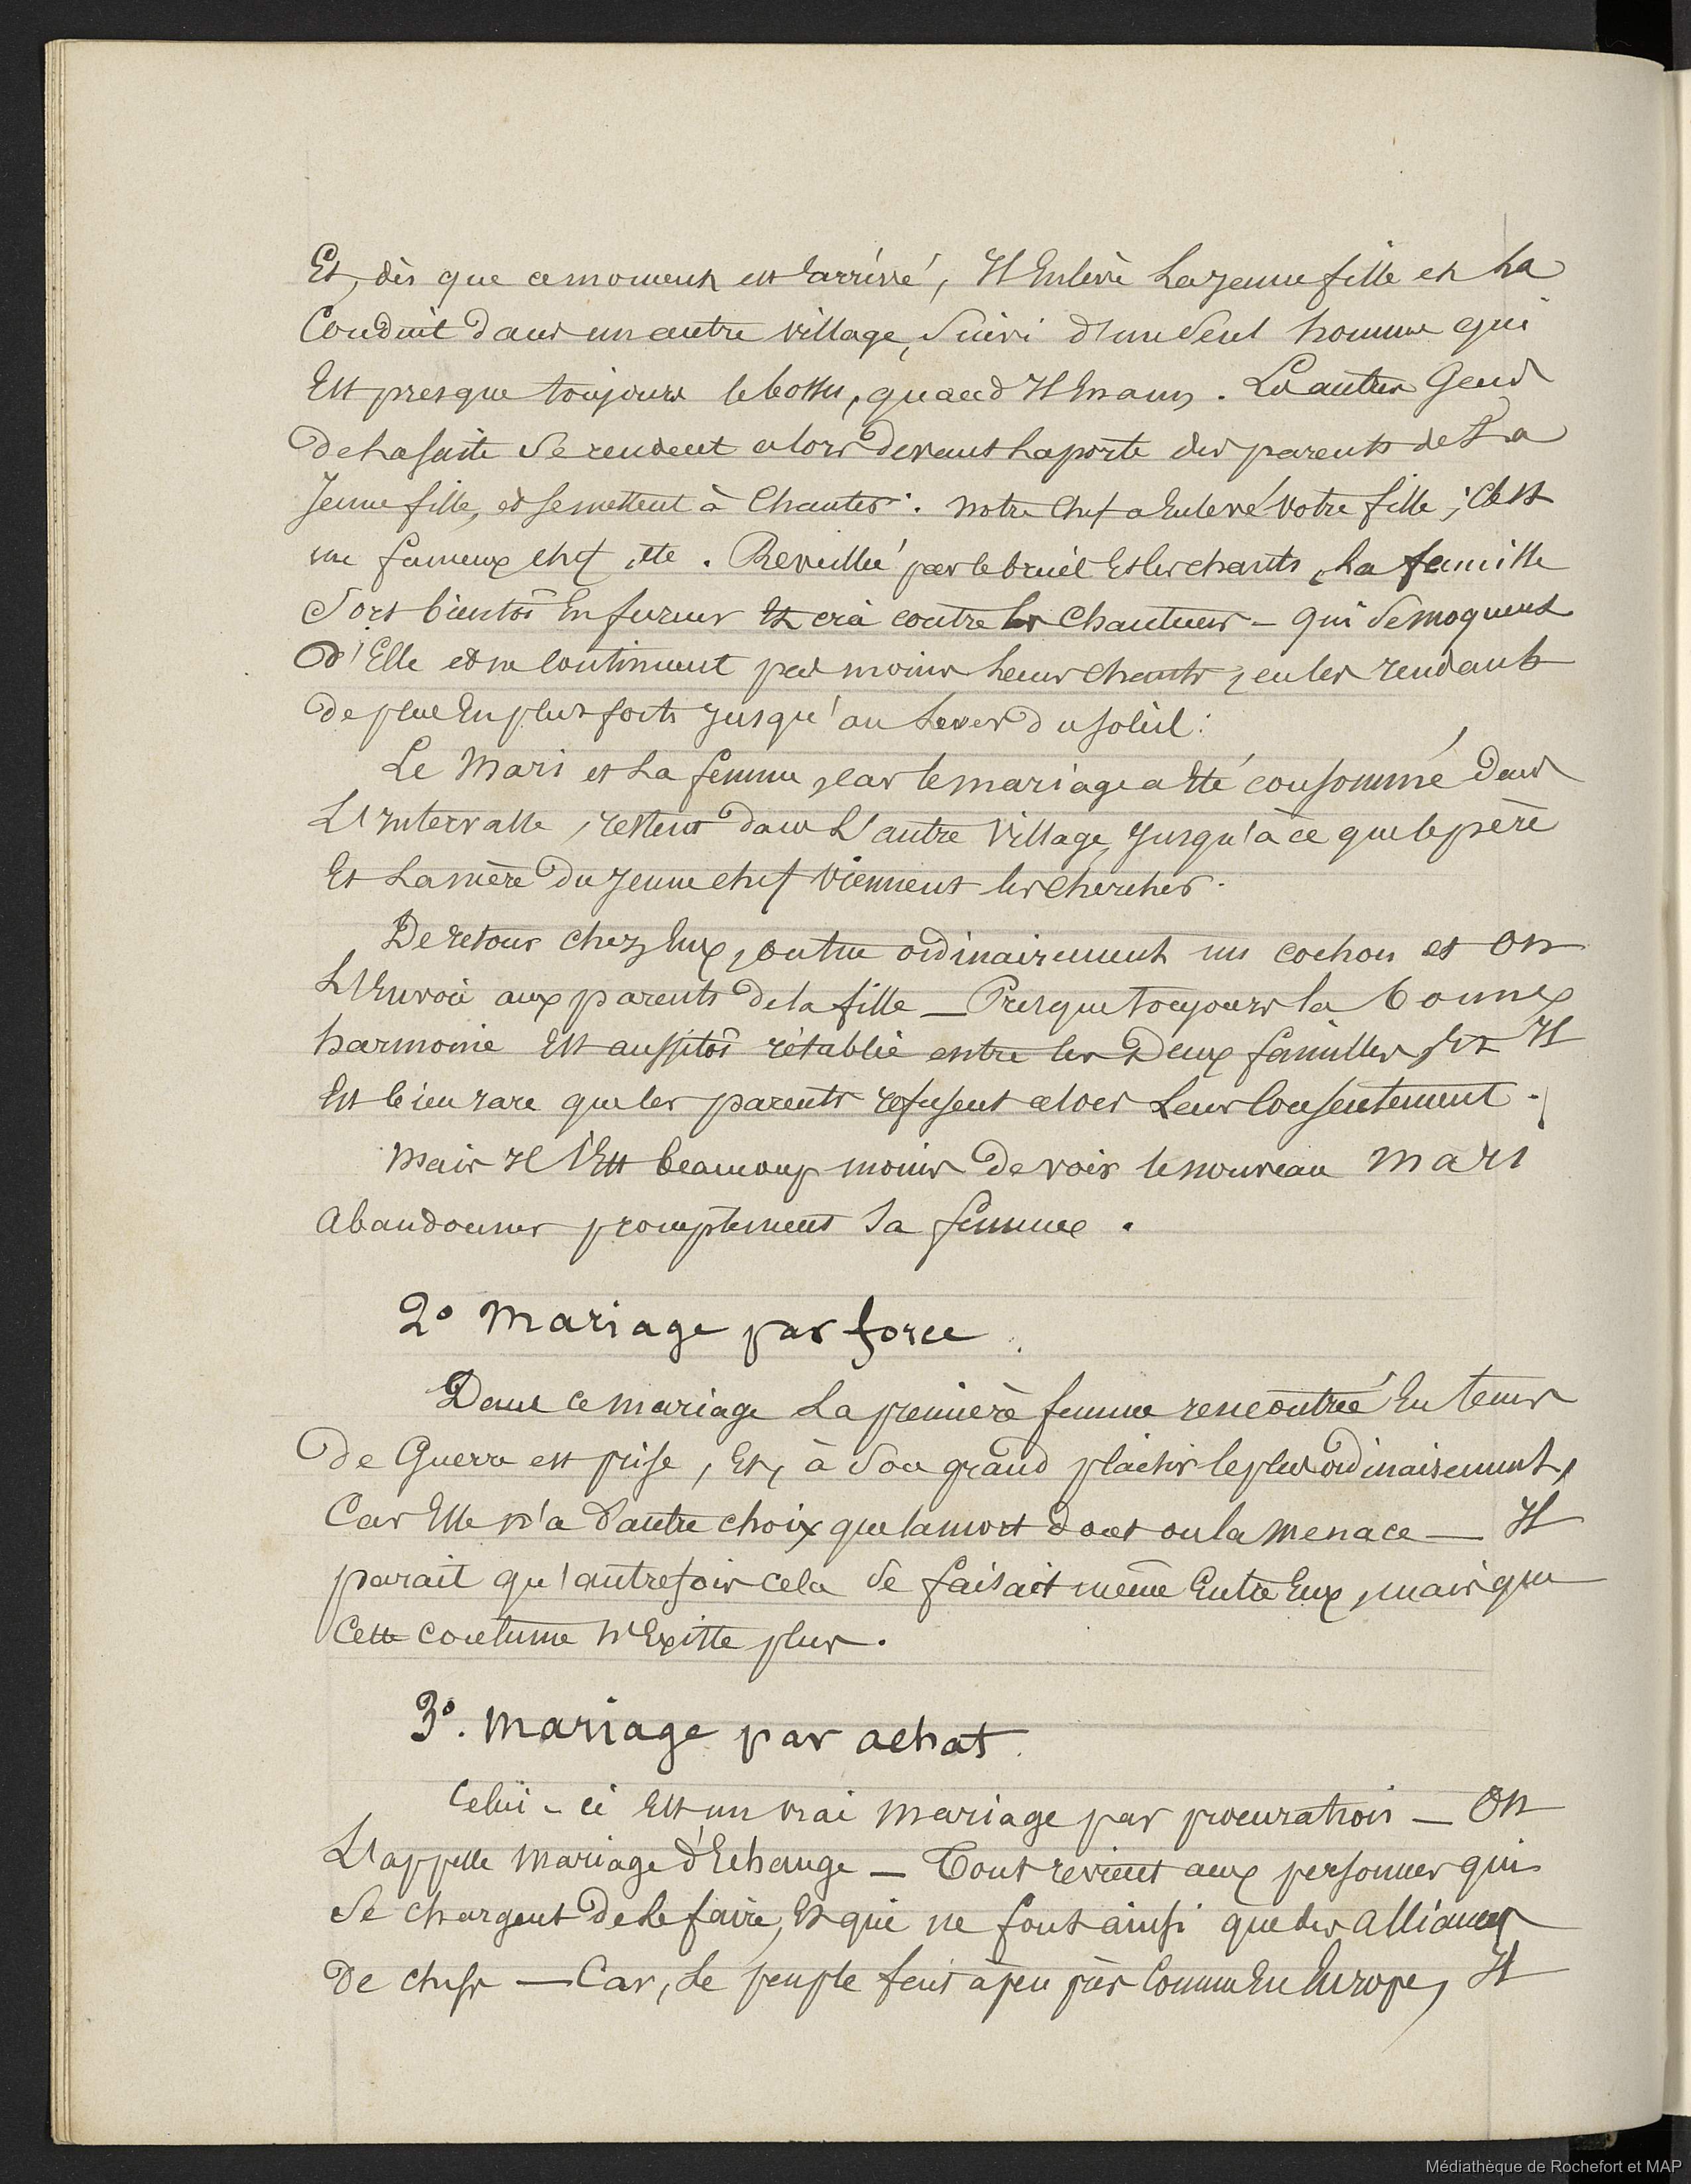 Et, dès que ce moment est arrivé, Il Enlève La jeune fille et La
Conduit dans un autre village, Suivi d'un Seul homme qui
Est presque toujours le bossu, quand Il En a un. Les autres Gens
De La suite Se rendent alors Devant La porte des parents de La
Jeune fille, et Se mettent à Chanter: Notre Chef a Enlevé votre fille; C'est
un fameux chef, etc. Reveillée par le bruit Et les chants, La famille
Sort bientôt En fureur Et crie contre les Chanteurs - qui Se moquent
D'Elle et ne Continuent pas moins Leurs Chants, en les rendants
De plus En plus forts Jusqu'au Lever Du soleil:
Le Mari et La femme, car le mariage a Eté consommé Dans
L'Intervalle, restent dans L'autre Village, Jusqu'à ce que le père
Et La mère Du Jeune chef Viennent les Chercher.
De retour chez Eux, on tue ordinairement un cochon et On
L'Envoie aux parents De la fille — Presque toujours la bonne
harmonie Est aussitôt rétablie entre les Deux familles, Et Il
Est bien rare que les parents refusent alors Leur Consentement.
Mais Il l'Est beaucoup moins De voir le nouveau Mari
Abandonner promptement Sa femme.
2° Mariage par force.
Dans ce mariage La première femme rencontrée En tems
De Guerre est prise, Et, à Son grand plaisir le plus ordinairement,
Car Elle n'a D'autre choix que la mort dont on la Menace — Il
parait qu'autrefois cela Se faisait même Entre Eux, mais que
Cette coutume N'Existe plus.
3°. Mariage par achat.
Celui-ci Est un vrai Mariage par procuration — On
L'appelle Mariage d'Echange — Tout revient aux personnes qui
Se chargent De Le faire, Et qui ne font ainsi que des Alliances
De chefs — Car, Le peuple fait à peu près Comme En Europe, Il
Médiathèque de Rochefort et MAP